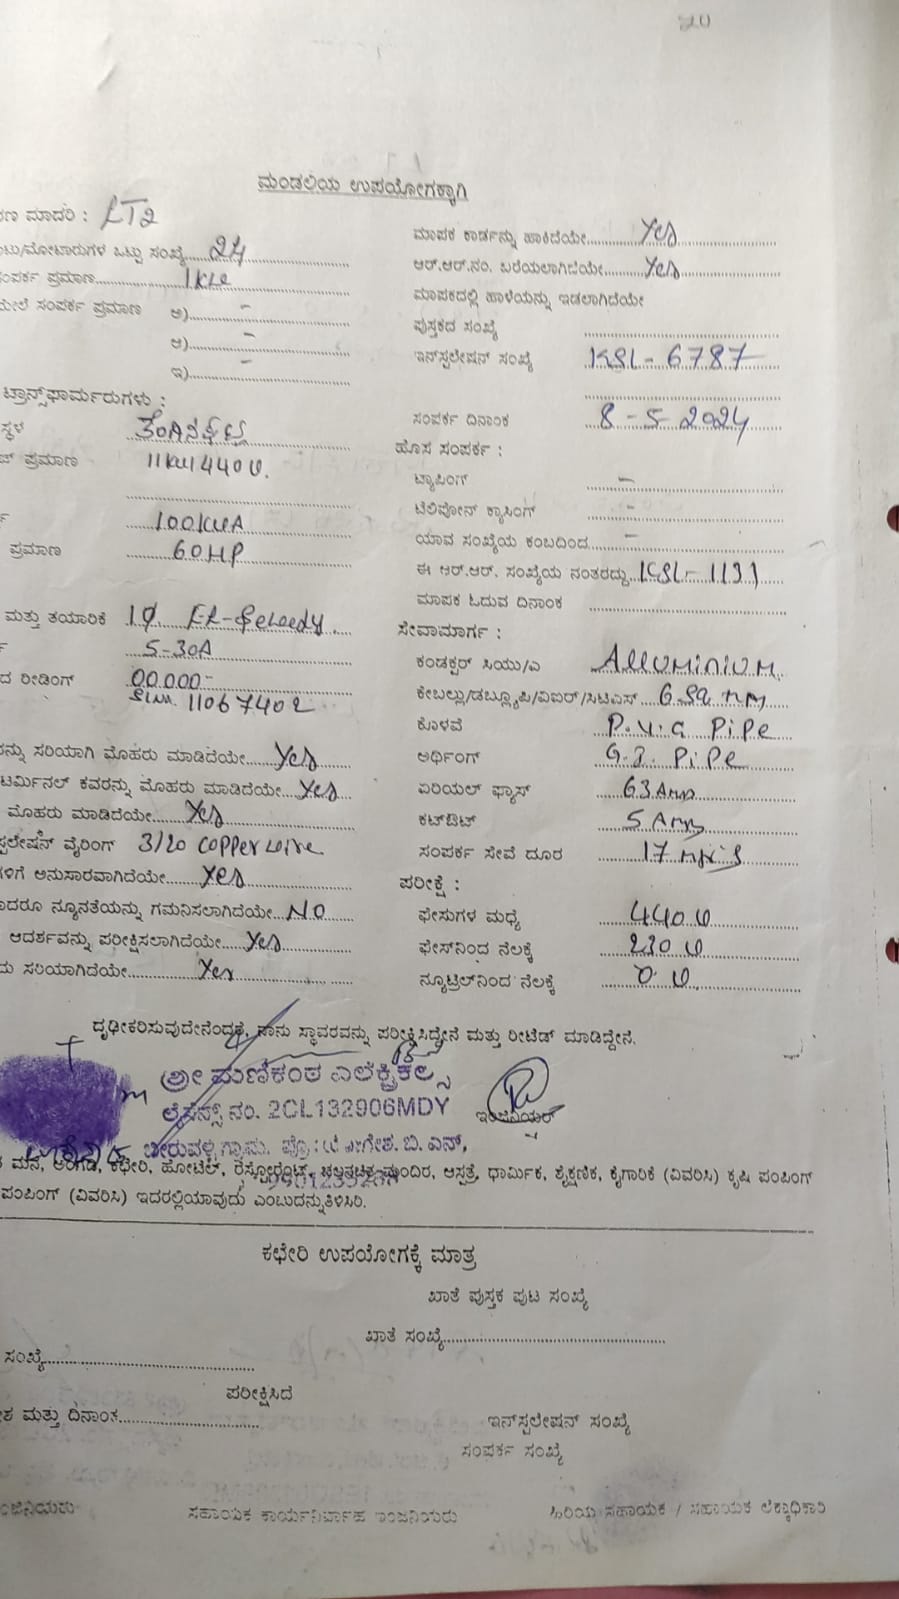 20
ಮಂಡಲಿಯ ಉಪಯೋಗಕ್ಕಾಗಿ
ರಣ ಮಾದರಿ : LT2
ಟು/ಮೋಟಾರುಗಳ ಒಟ್ಟು ಸಂಖ್ಯೆ..... 24
ಸಂಪರ್ಕ ಪ್ರಮಾಣ.....
ಮೇಲೆ ಸಂಪರ್ಕ ಪ್ರಮಾಣ ಅ)..... -
ಆ)..... -
ಇ)..... -
ಟ್ರಾನ್ಸ್‌ಫಾರ್ಮರುಗಳು :
ಸ್ಥಳ
ಪ್ರಮಾಣ
100KVA
ಪ್ರಮಾಣ ..... 60HP
ಮತ್ತು ತಯಾರಿಕೆ 1Φ
5-30A
ದ ರೀಡಿಂಗ್ 00.000-
11067402
ರನ್ನು ಸರಿಯಾಗಿ ಮೊಹರು ಮಾಡಿದೆಯೇ..... Yes
ಟರ್ಮಿನಲ್ ಕವರನ್ನು ಮೊಹರು ಮಾಡಿದೆಯೇ..... Yes
ಮೊಹರು ಮಾಡಿದೆಯೇ..... Yes
ಸ್ಪಲೇಷನ್ ವೈರಿಂಗ್ 3/20 copper wire
ಗಳಿಗೆ ಅನುಸಾರವಾಗಿದೆಯೇ..... Yes
ದಾದರೂ ನ್ಯೂನತೆಯನ್ನು ಗಮನಿಸಲಾಗಿದೆಯೇ..... NO
ಆದರ್ಶವನ್ನು ಪರೀಕ್ಷಿಸಲಾಗಿದೆಯೇ..... Yes
ದು ಸರಿಯಾಗಿದೆಯೇ..... Yes
ಮಾಪಕ ಕಾರ್ಡನ್ನು ಹಾಕಿದೆಯೇ..... Yes
ಆರ್.ಆರ್.ನಂ. ಬರೆಯಲಾಗಿದೆಯೇ..... Yes
ಮಾಪಕದಲ್ಲಿ ಹಾಳೆಯನ್ನು ಇಡಲಾಗಿದೆಯೇ
ಪುಸ್ತಕದ ಸಂಖ್ಯೆ
ಇನ್‌ಸ್ಪಲೇಷನ್ ಸಂಖ್ಯೆ KSL-6787
ಸಂಪರ್ಕ ದಿನಾಂಕ 8-5-2024
ಹೊಸ ಸಂಪರ್ಕ :
ಟ್ಯಾಪಿಂಗ್ -
ಟೆಲಿಪೋನ್ ಕ್ಯಾಸಿಂಗ್ -
ಯಾವ ಸಂಖ್ಯೆಯ ಕಂಬದಿಂದ..... -
ಈ ಆರ್.ಆರ್. ಸಂಖ್ಯೆಯ ನಂತರದ್ದು.. KSL-1191
ಮಾಪಕ ಓದುವ ದಿನಾಂಕ
ಸೇವಾಮಾರ್ಗ :
ಕಂಡಕ್ಟರ್ ಸಿಯು/ಎ ALLUMINIUM
ಕೇಬಲ್ಲು/ಡಬ್ಲ್ಯೂಪಿ/ವಿಐಆರ್/ಸಿಟಿಎಸ್ .... 6 SQ MM
ಕೊಳವೆ P.V.C PiPe
ಅರ್ಥಿಂಗ್ G.I. PiPe
ಏರಿಯಲ್ ಫ್ಯೂಸ್ 63 Amp
ಕಟ್‌ಔಟ್ 5 Amp
ಸಂಪರ್ಕ ಸೇವೆ ದೂರ
ಪರೀಕ್ಷೆ :
ಫೇಸುಗಳ ಮಧ್ಯೆ 440 V
ಫೇಸ್‌ನಿಂದ ನೆಲಕ್ಕೆ 230 V
ನ್ಯೂಟ್ರಲ್‌ನಿಂದ ನೆಲಕ್ಕೆ 0 V
ದೃಢೀಕರಿಸುವುದೇನೆಂದರೆ, ನಾನು ಸ್ಥಾವರವನ್ನು ಪರೀಕ್ಷಿಸಿದ್ದೇನೆ ಮತ್ತು ರೀಟೆಡ್ ಮಾಡಿದ್ದೇನೆ.
ಶ್ರೀ ಮಣಿಕಂಠ ಎಲೆಕ್ಟ್ರಿಕಲ್ಸ್
ಲೈಸೆನ್ಸ್ ನಂ. 2CL132906MDY
ಇಂಜಿನಿಯರ್
ಬೀರುವಳ್ಳಿ ಗ್ರಾಮ. ಪ್ರೊ: ಬಿ.ಎನ್,
ಮನೆ, ಅಂಗಡಿ, ಕಛೇರಿ, ಹೋಟೆಲ್, ರೆಸ್ಟೋರೆಂಟ್, ಚಲನಚಿತ್ರ ಮಂದಿರ, ಆಸ್ಪತ್ರೆ, ಧಾರ್ಮಿಕ, ಶೈಕ್ಷಣಿಕ, ಕೈಗಾರಿಕೆ (ವಿವರಿಸಿ) ಕೃಷಿ ಪಂಪಿಂಗ್
ಪಂಪಿಂಗ್ (ವಿವರಿಸಿ) ಇದರಲ್ಲಿಯಾವುದು ಎಂಬುದನ್ನುತಿಳಿಸಿರಿ.
ಕಛೇರಿ ಉಪಯೋಗಕ್ಕೆ ಮಾತ್ರ
ಖಾತೆ ಪುಸ್ತಕ ಪುಟ ಸಂಖ್ಯೆ
ಖಾತೆ ಸಂಖ್ಯೆ.....
ಸಂಖ್ಯೆ.....
ಪರೀಕ್ಷಿಸಿದೆ
ಮತ್ತು ದಿನಾಂಕ.....
ಇನ್‌ಸ್ಪಲೇಷನ್ ಸಂಖ್ಯೆ
ಸಂಪರ್ಕ ಸಂಖ್ಯೆ
ಂಜಿನಿಯರು
ಸಹಾಯಕ ಕಾರ್ಯನಿರ್ವಾಹ ಇಂಜನಿಯರು
ಹಿರಿಯ ಸಹಾಯಕ / ಸಹಾಯಕ ಲೆಕ್ಕಾಧಿಕಾರಿ